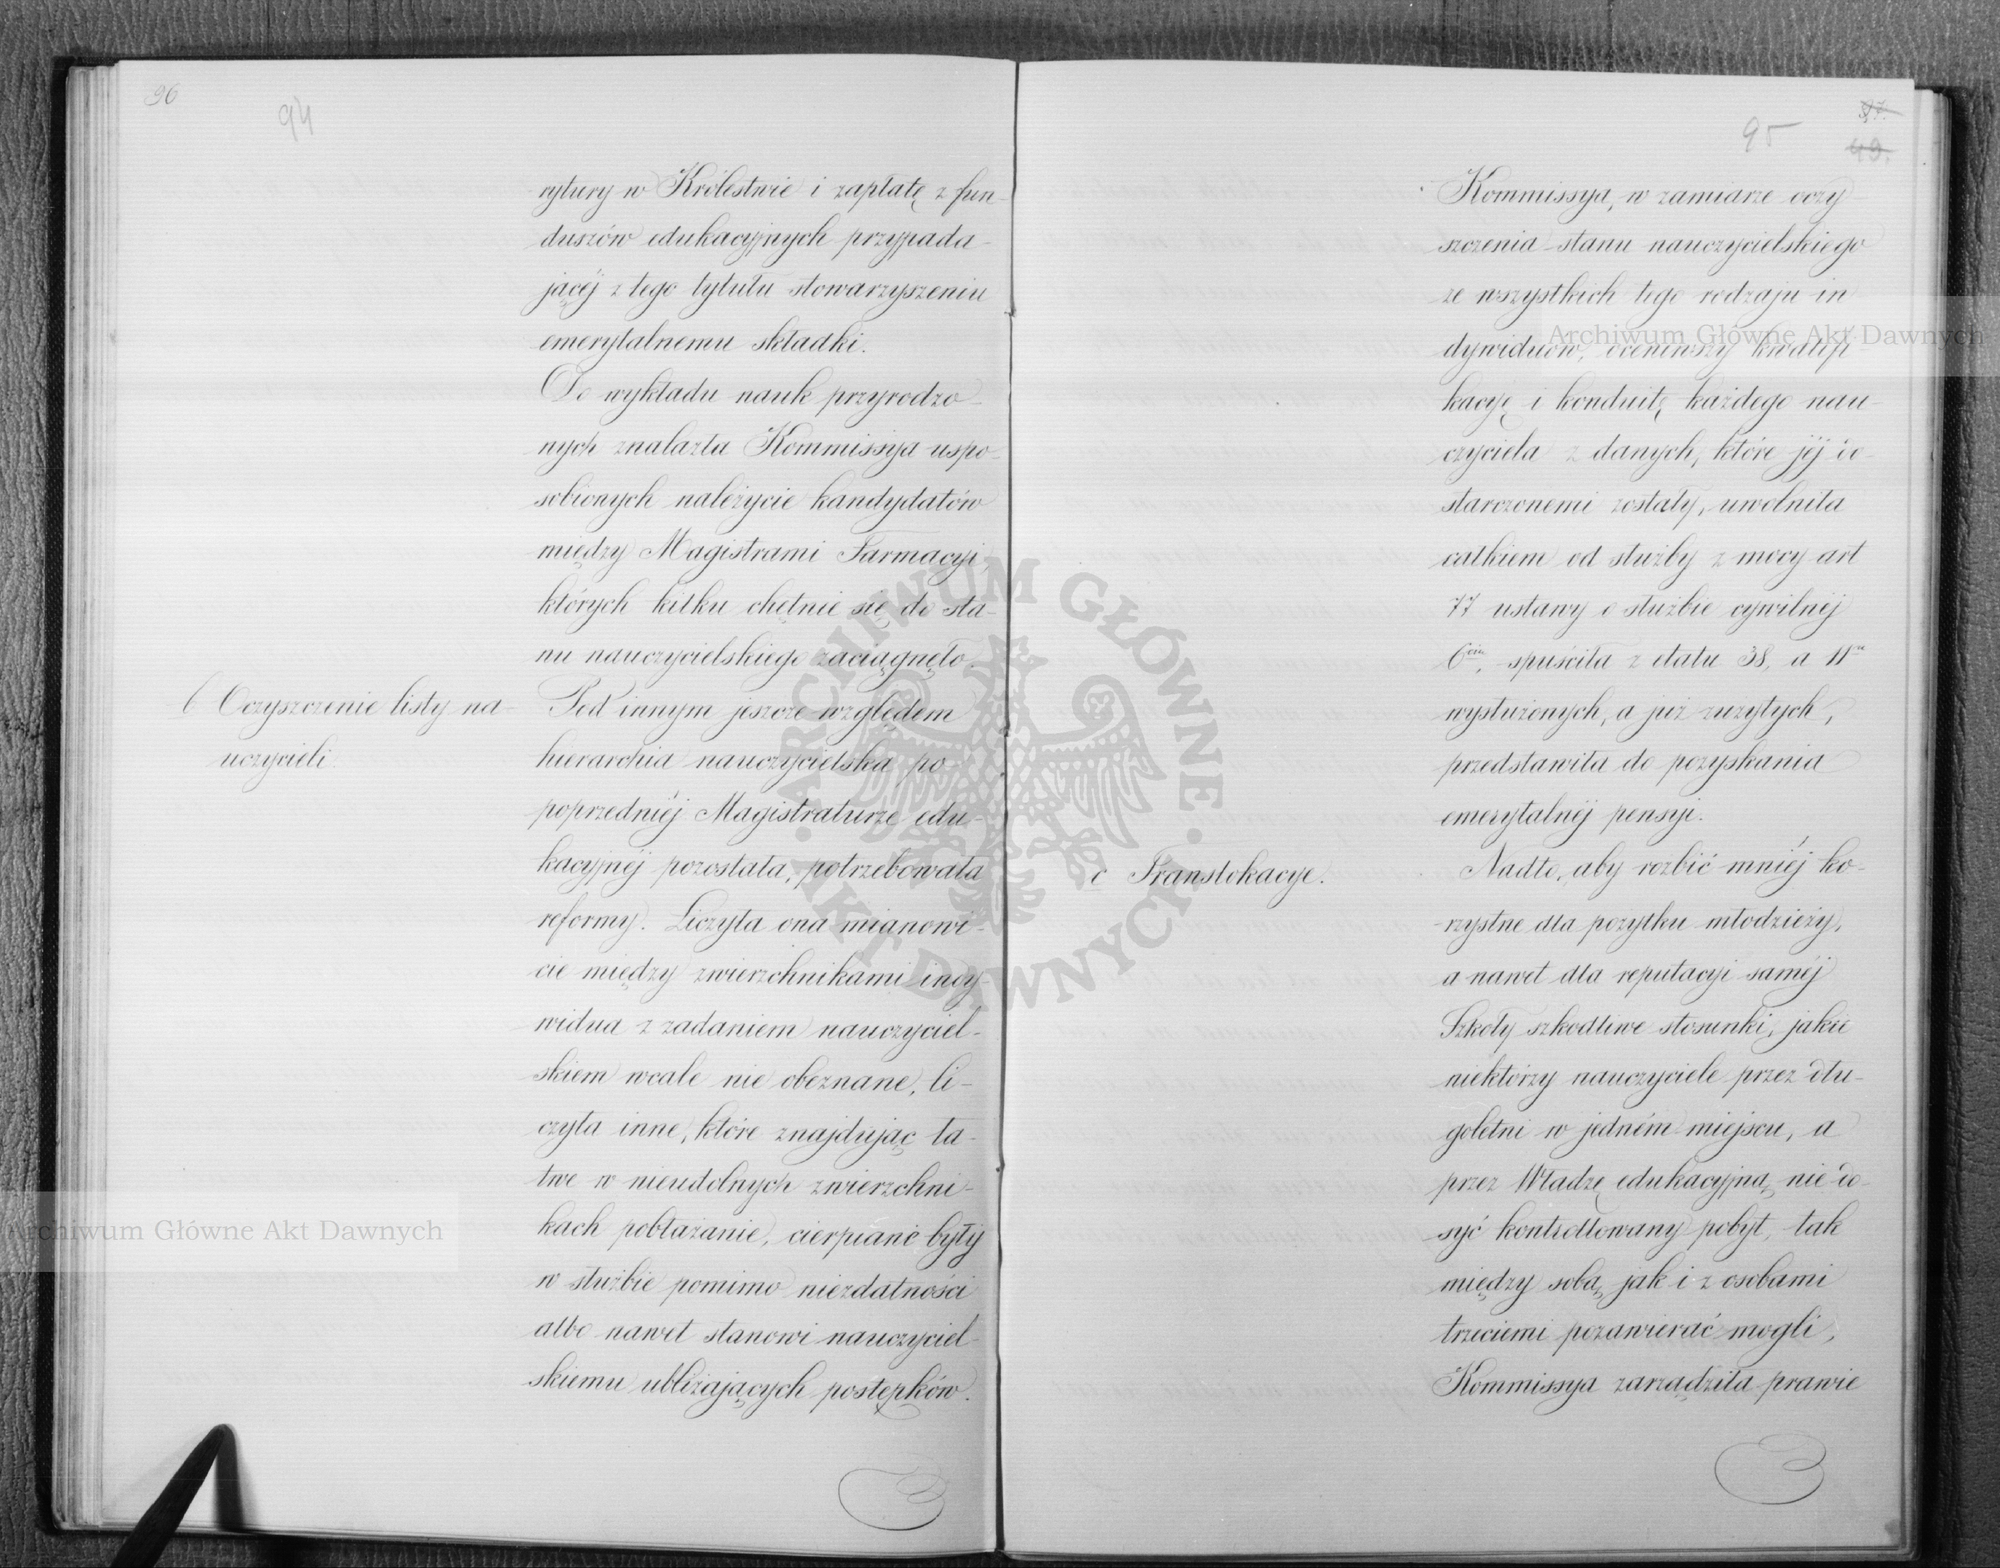 96
94
rytury w Królestwie i zapłatę z fun-
duszów edukacyjnych przypada-
jącéj z tego tytułu stowarzyszeniu
emerytalnemu składki.
Do wykładu nauk przyrodzo-
nych znalazła Kommissya uspo-
sobionych należycie kandydatów
między Magistrami Farmacyi,
których kilku chętnie się do sta-
nu nauczycielskiego zaciągnęło.
b Oczyszczenie listy na-
uczycieli.
Pod innym jeszcze względem
hierarchia nauczycielska po
poprzedniéj Magistraturze edu-
kacyjnéj pozostała, potrzebowała
reformy. Liczyła ona mianowi-
cie między zwierzchnikami indy-
widua z zadaniem nauczyciel-
skiem wcale nie obeznane, li-
czyła inne, które znajdując ła-
twe w nieudolnych zwierzchni-
kach pobłażanie, cierpiane były
w służbie pomimo niezdatności
albo nawet stanowi nauczyciel-
skiemu ubliżających postępków.
95
97.
49.
Kommissya, w zamiarze oczy-
szczenia stanu nauczycielskiego
ze wszystkich tego rodzaju in-
dywiduów, oceniwszy kwalifi-
kacyę i konduitę każdego nau-
czyciela z danych, które jéj do-
starczonemi zostały, uwolniła
całkiem od służby z mocy art
77 ustawy o służbie cywilnéj
6ciu, spuściła z etatu 38, a 11u
wysłużonych, a już zużytych,
przedstawiła do pozyskania
emerytalnéj pensyi.
c Translokacye.
Nadto, aby rozbić mniéj ko-
rzystne dla pożytku młodzieży,
a nawet dla reputacyi saméj
Szkoły szkodliwe stosunki, jakie
niektórzy nauczyciele przez dłu-
goletni w jedném miejscu, a
przez Władzę edukacyjną nie do-
syć kontrollowany pobyt, tak
między sobą jak i z osobami
trzeciemi pozawierać mogli,
Kommissya zarządziła prawie
Archiwum Główne Akt Dawnych
Archiwum Główne Akt Dawnych
ARCHIWUM GŁÓWNE AKT DAWNYCH